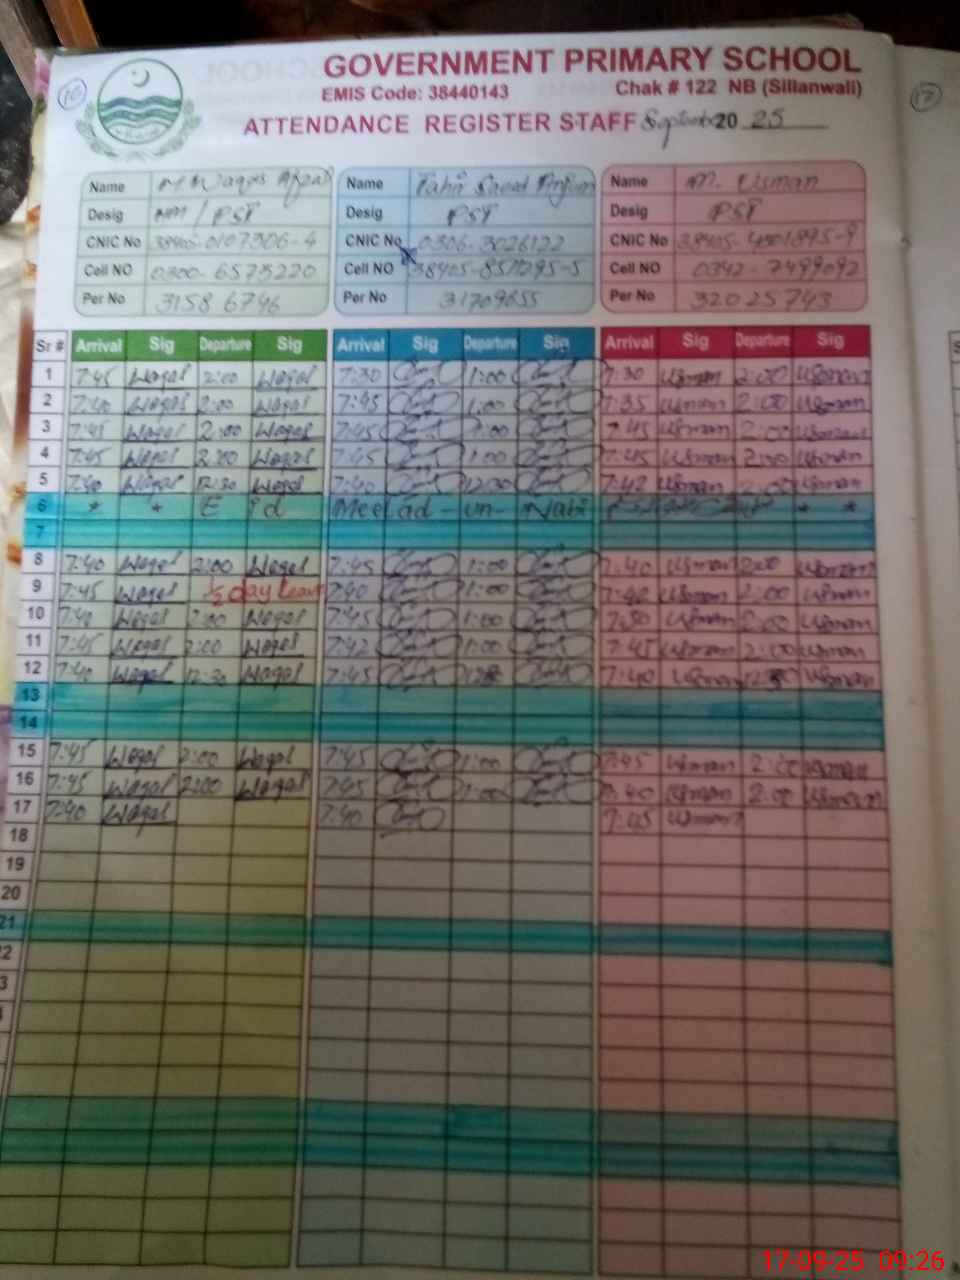 16
17
GOVERNMENT PRIMARY SCHOOL
EMIS Code: 38440143 Chak # 122 NB (Sillanwali)
ATTENDANCE REGISTER STAFF September 20 25
Name M Waqas Afzal Name Tahir Name M. Usman
Desig PST Desig PST Desig PST
CNIC No 38405-0107306-4 CNIC No 0306-3026122 CNIC No
Cell NO 0300-6573220 Cell NO Cell NO 0342-7499092
Per No 31586796 Per No 31709655 Per No 32025743
Sr # Arrival Sig Departure Sig Arrival Sig Departure Sig Arrival Sig Departure Sig
1 7:45 Waqas 2:00 Waqas 7:30 1:00 7:30 Usman 2:00 Usman
2 7:40 Waqas 2:00 Waqas 7:45 1:00 7:35 Usman 2:00 Usman
3 7:45 Waqas 2:00 Waqas 7:45 1:00 7:45 Usman 2:00 Usman
4 7:45 Waqas 2:00 Waqas 7:45 1:00 7:45 Usman 2:00 Usman
5 7:40 Waqas 12:30 Waqas 7:40 12:30 7:42 Usman 2:00 Usman
6 * * E id Meelad - un - Nabi * *
7
8 7:40 Waqas 2:00 Waqas 7:45 1:00 7:40 Usman 2:00 Usman
9 7:45 Waqas ½ day Leave 7:40 1:00 Usman 2:00 Usman
10 7:40 Waqas 2:00 Waqas 7:45 1:00 7:30 Usman 2:00 Usman
11 7:45 Waqas 2:00 Waqas 7:42 1:00 7:45 Usman 2:00 Usman
12 7:40 Waqas 12:30 Waqas 7:45 7:40 Usman Usman
13
14
15 7:45 Waqas 2:00 Waqas 7:45 1:00 7:45 Usman 2:00 Usman
16 7:45 Waqas 2:00 Waqas 7:45 1:00 7:40 Usman 2:00 Usman
17 7:40 Waqas 7:40 7:45 Usman
18
19
20
21
17-09-25 09:26